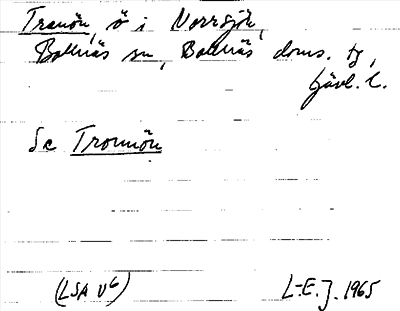 Tranön, ö i Norrsjön,
Bollnäs sn, Bollnäs doms. tg,
Gävl. l.
Se Tronnön
(LSA V6)
L-E. J. 1965